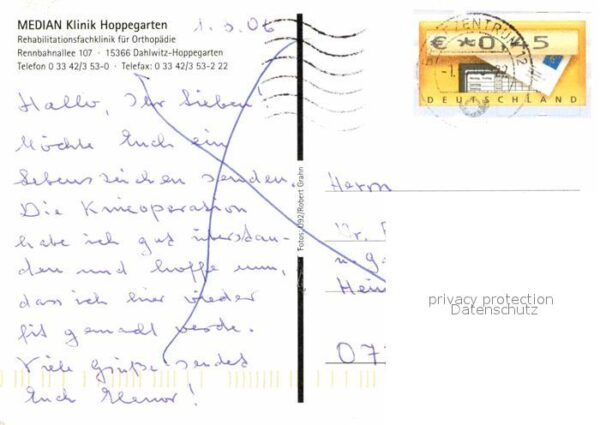 MEDIAN Klinik Hoppegarten
Rehabilitationsfachklinik für Orthopädie
Rennbahnallee 107 · 15366 Dahlwitz-Hoppegarten
Telefon 0 33 42/3 53-0 · Telefax: 0 33 42/3 53-2 22
1.3.06
Hallo, Ihr Lieben!
Möchte Euch ein
Lebenszeichen senden.
Die Knieoperation
habe ich gut überstan-
den und hoffe nun,
dass ich hier wieder
fit gemacht werde.
Viele Grüße sendet
Euch
Fotos: 092/Robert Grahn
BRIEFZENTRUM 12
€ *0,45
DEUTSCHLAND
Herrn
Dr.
Hein
07
privacy protection
Datenschutz